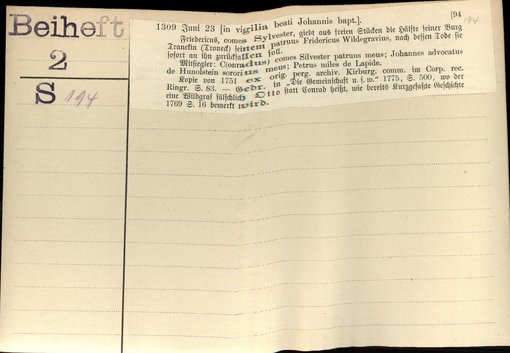 Beiheft
2
S 194
[94
194
1309 Juni 23 [in vigilia beati Johannis bapt.].
Friedericus, comes Sylvester, giebt aus freien Stücken die Hälfte seiner Burg
Tranekin (Troneck) seinem patruus Fridericus Wildegravius, nach dessen Tode sie
sofort an ihn zurückfallen soll.
Mitsiegler: Conradus) comes Silvester patruus meus; Johannes advocatus
de Hunolstein sororius meus; Petrus miles de Lapide.
Kopie von 1751 ex orig. perg. archiv. Kirburg. comm. im Corp. rec.
Ringr. S. 83. — Gedr. in „Die Gemeinschaft u. s. w." 1775, S. 500, wo der
eine Wildgraf fälschlich Otto statt Conrad heißt, wie bereits Kurzgefaßte Geschichte
1769 S. 16 bemerkt wird.